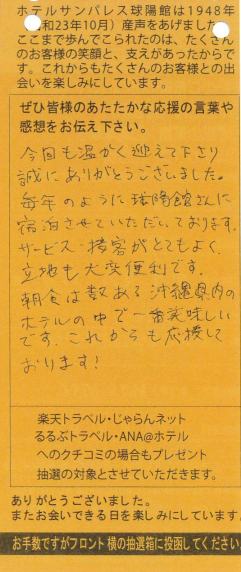 ホテルサンパレス球陽館は1948年
和23年10月）産声をあげました
ここまで歩んでこられたのは、たくさん
のお客様の笑顔と、支えがあったからで
す。これからもたくさんのお客様との出
会いを楽しみにしています。
ぜひ皆様のあたたかな応援の言葉や
感想をお伝え下さい。
今回も温かく迎えて下さり
誠にありがとうございました。
毎年のように球陽館さんに
宿泊させていただいております。
サービス・接客がとてもよく、
立地も大変便利です。
朝食は数ある沖縄県内の
ホテルの中で一番美味しい
です。これからも応援して
おります!
楽天トラベル・じゃらんネット
るるぶトラベル・ANA@ホテル
へのクチコミの場合もプレゼント
抽選の対象とさせていただきます。
ありがとうございました。
またお会いできる日を楽しみにしています
お手数ですがフロント横の抽選箱に投函してください